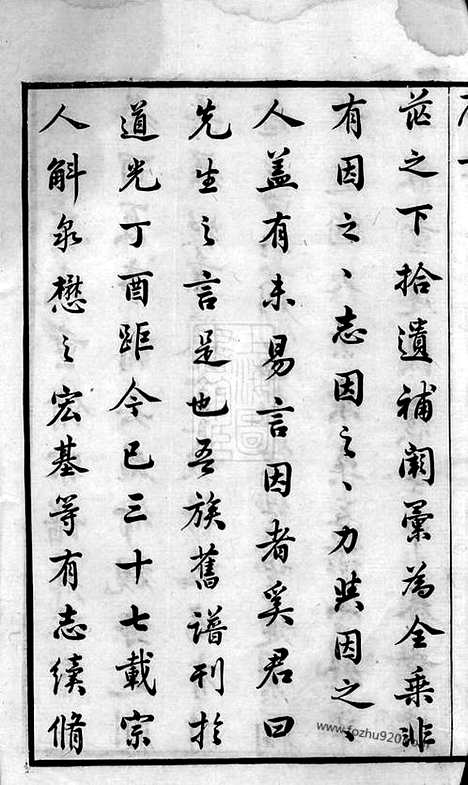 茫之下拾遺補闕彙為全乘非
有因之之志因之之力與因之之
人蓋有未易言因者奚君曰
先生之言是也吾族舊譜刊於
道光丁酉距今已三十七載宗
人斛泉懋之宏基等有志續脩
www.fozhu920.com